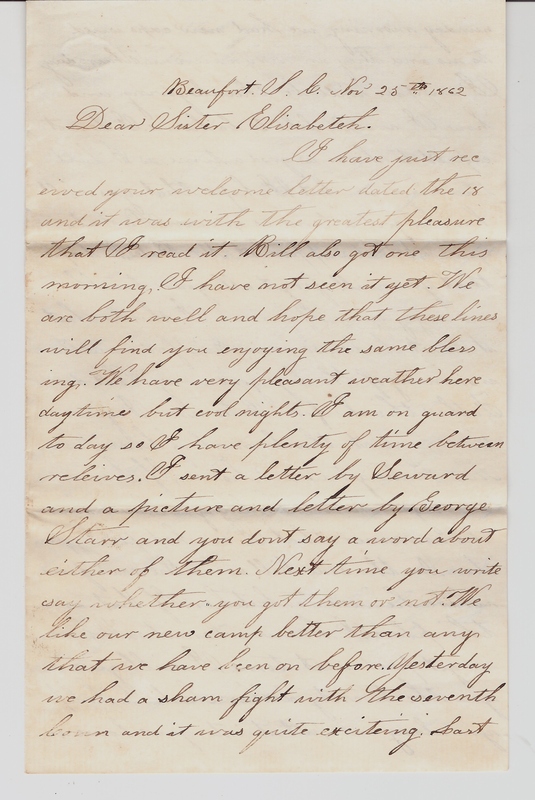 Beaufort. S. C. Nov 25th 1862
Dear Sister Elisabeteh.
I have just rec
eived your welcome letter dated the 18
and it was with the greatest pleasure
that I read it. Bill also got one this
morning, I have not seen it yet. We
are both well and hope that these lines
will find you enjoying the same bless
ing. We have very pleasant weather here
daytime but cool nights. I am on guard
to day so I have plenty of time between
releives. I sent a letter by Seward
and a picture and letter by George
Starr and you dont say a word about
either of them. Next time you write
say whether you got them or not. We
like our new camp better than any
that we have been on before. Yesterday
we had a sham fight with the seventh
Conn and it was quite exciteing. Last